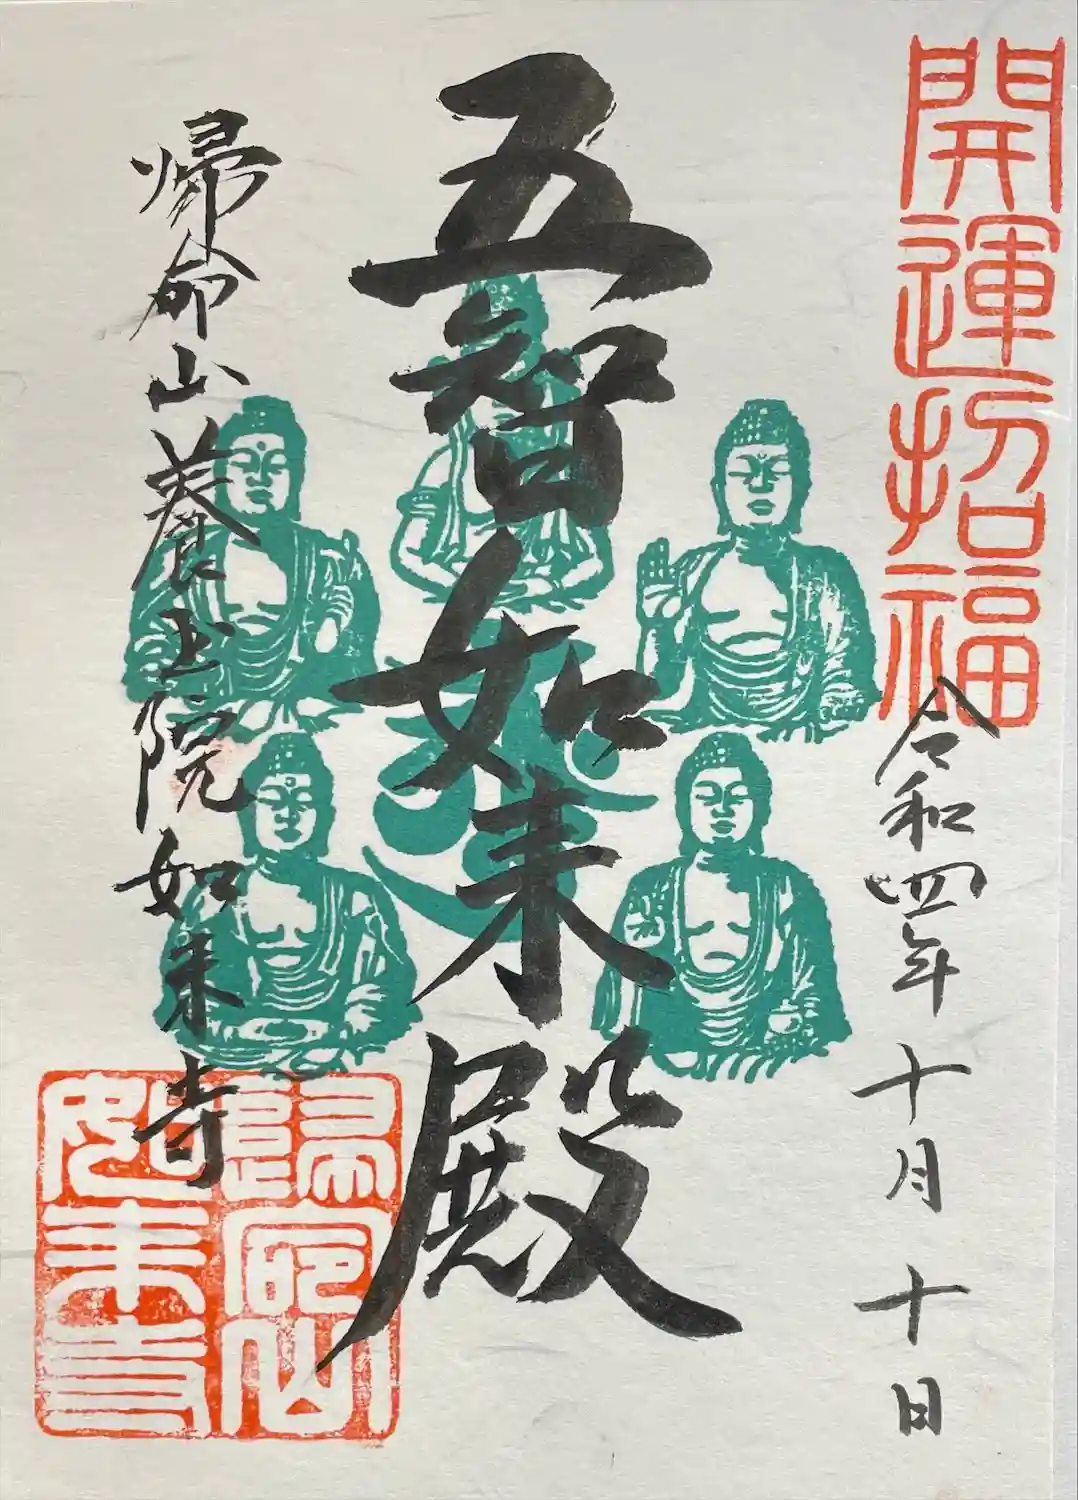 開運招福
令和四年十月十日
五智如来殿
帰命山養玉院如来寺
帰命山
如来寺